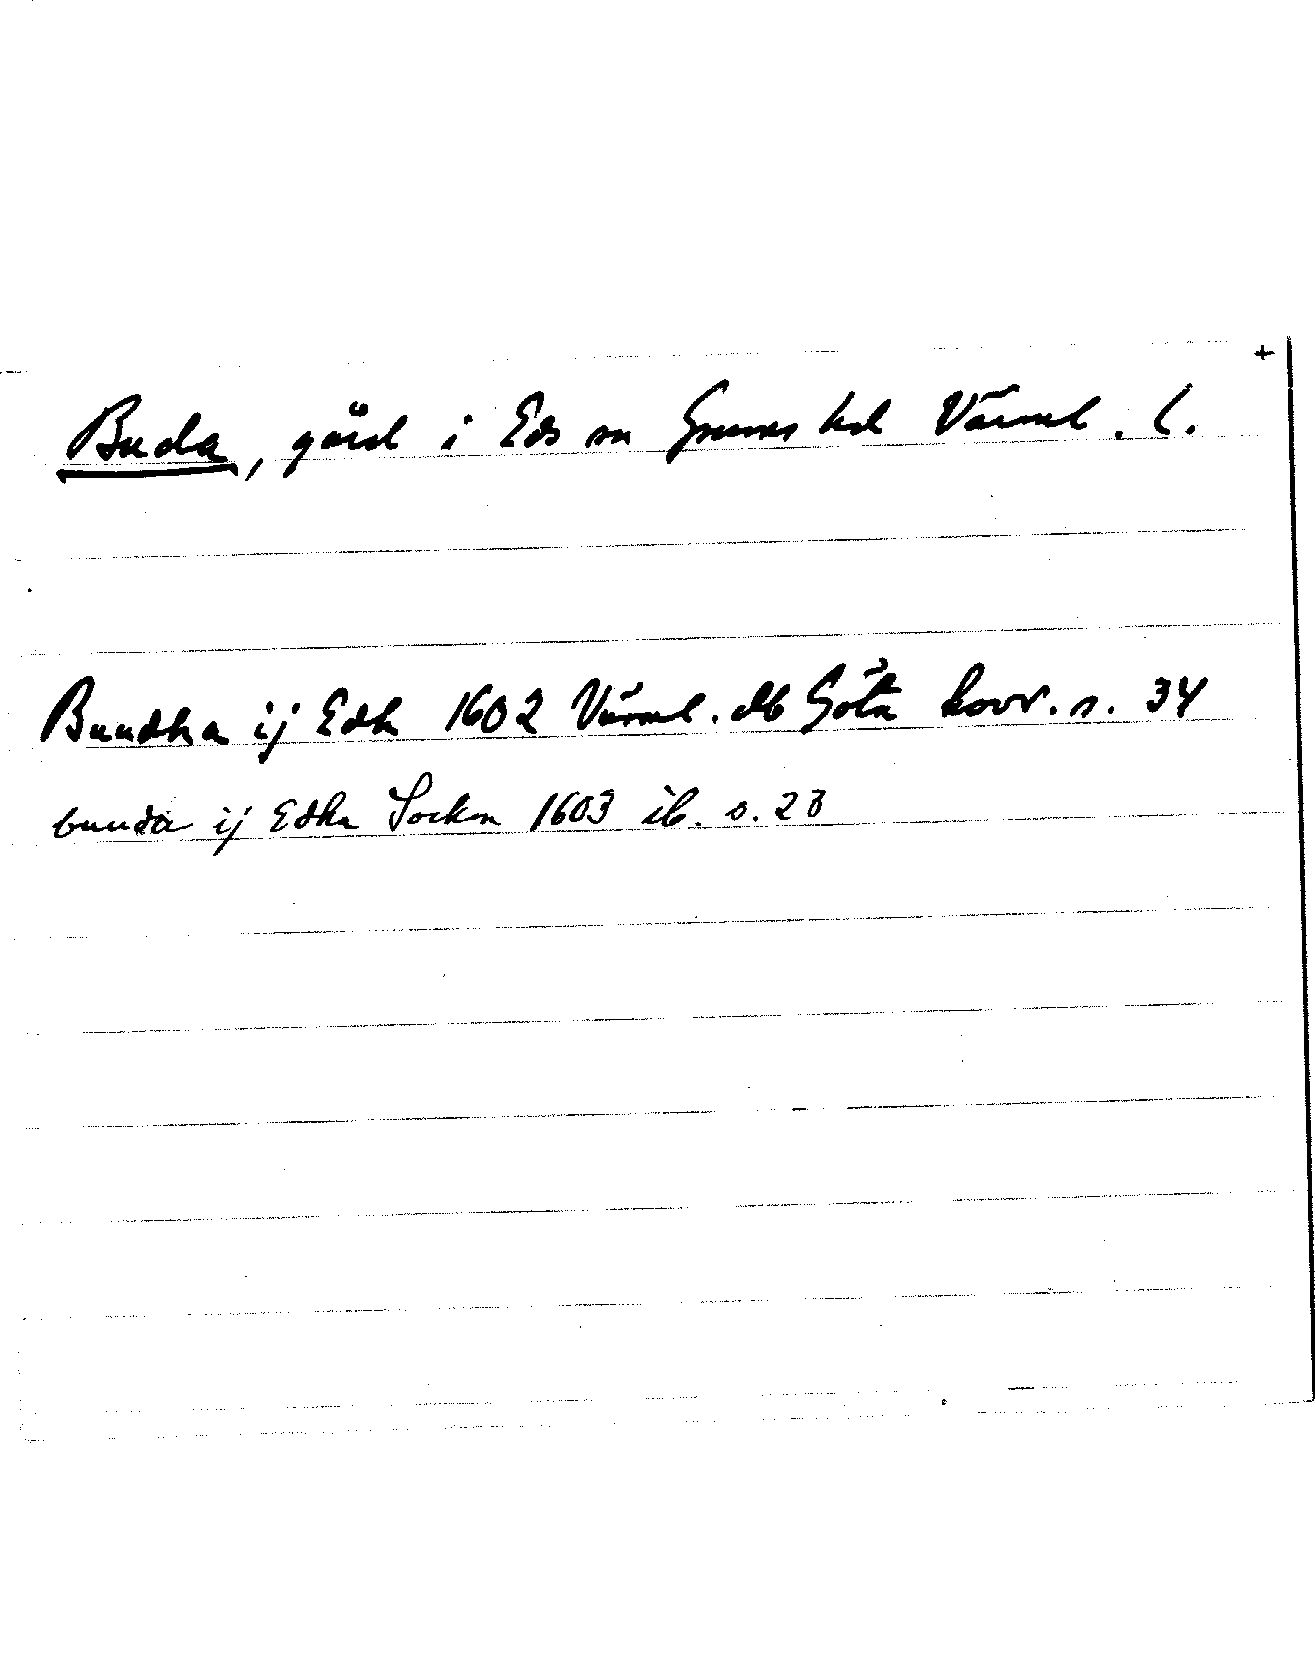 +
Buda, gård i Eds sn Grums hd Värml. l.
Buudha ij Edh 1602 Värml. db Göta hovr. s. 34
buuda ij Edha Sockn 1603 ib. s. 23